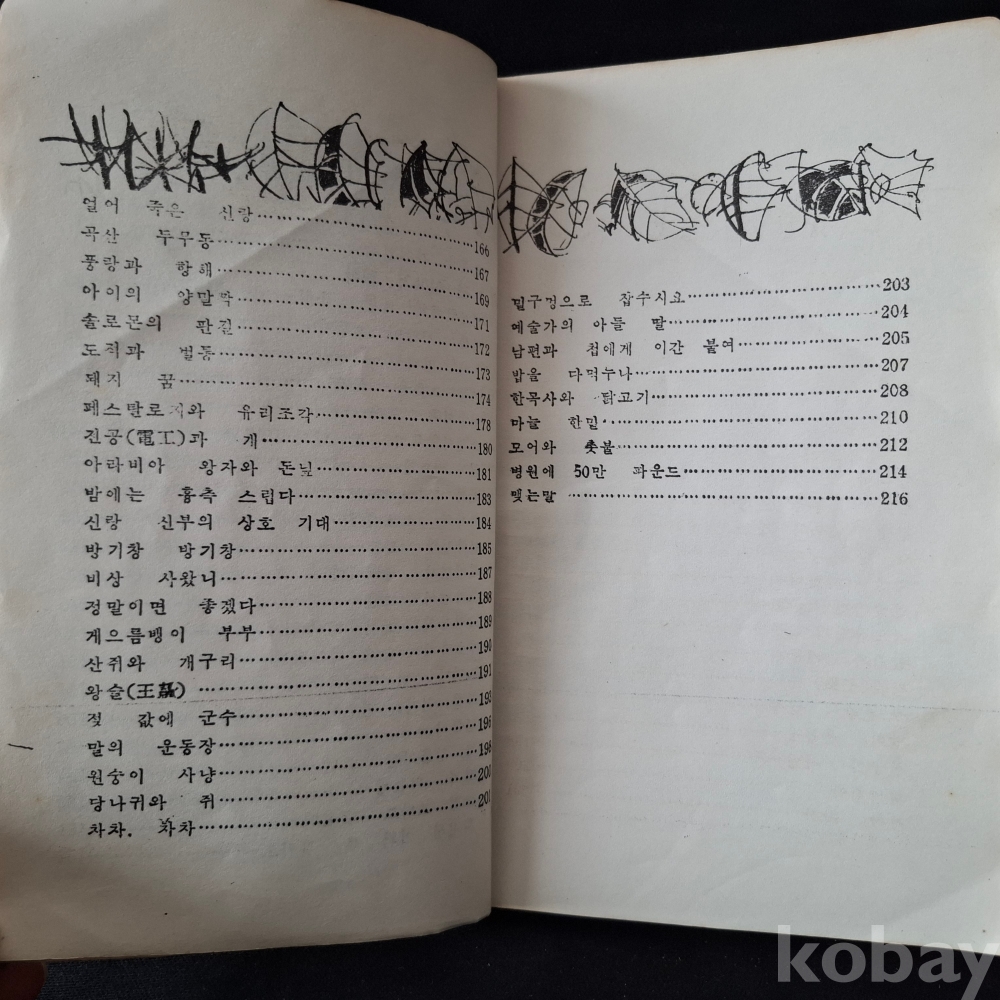 얼어 죽은 신랑……………………166
곡산 두무동……………………167
풍랑과 항해……………………169
아이의 양말짝……………………171
솔로몬의 판결……………………172
도적과 벌통……………………173
돼지 꿈……………………174
페스탈로지와 유리조각……………………178
전공(電工)과 개……………………180
아라비아 왕자와 돈닢……………………181
밤에는 흉측 스럽다……………………183
신랑 신부의 상호 기대……………………184
방기창 방기창……………………185
비상 사왔니……………………187
정말이면 좋겠다……………………188
게으름뱅이 부부……………………189
산쥐와 개구리……………………190
왕술(王)……………………191
젖 값에 군수……………………193
말의 운동장……………………196
원숭이 사냥……………………198
당나귀와 쥐……………………200
차차. 차차……………………201
밑구멍으로 잡수시요……………………203
예술가의 아들 딸……………………204
남편과 첩에게 이간 붙여……………………205
밥을 다먹누나……………………207
한목사와 닭고기……………………208
마늘 한밀……………………210
모어와 촛불……………………212
병원에 50만 파운드……………………214
맺는말……………………216
kobay